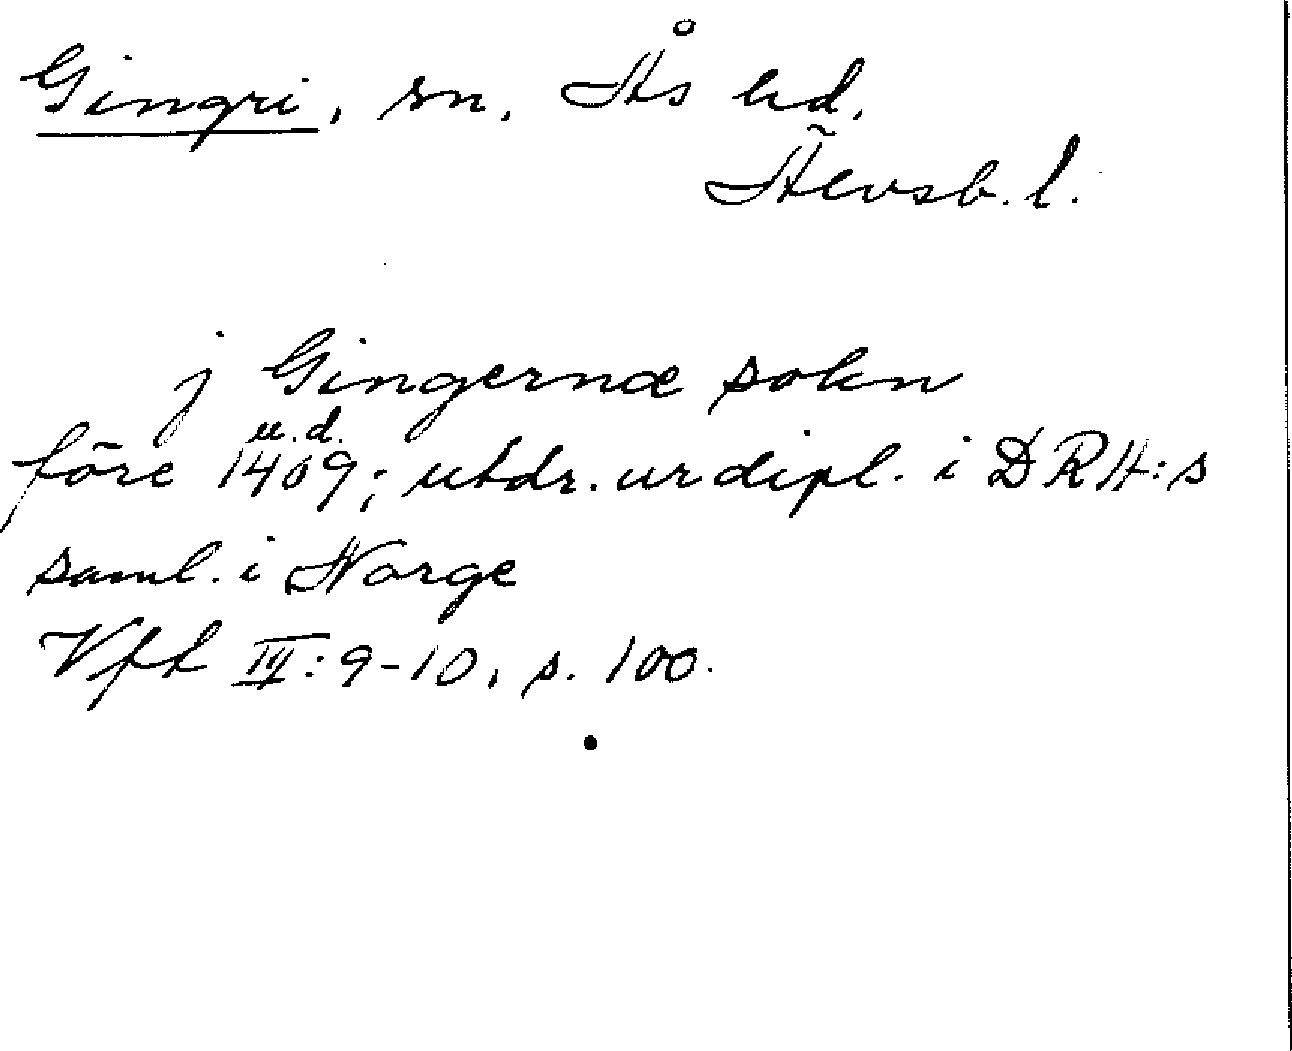 Gingri, sn, Ås hd,
Älvsb. l.
j Gingernæ sokn
u.d.
före 1409; utdr. ur dipl. i DRH:s
saml. i Norge
Vft III: 9-10, s. 100.